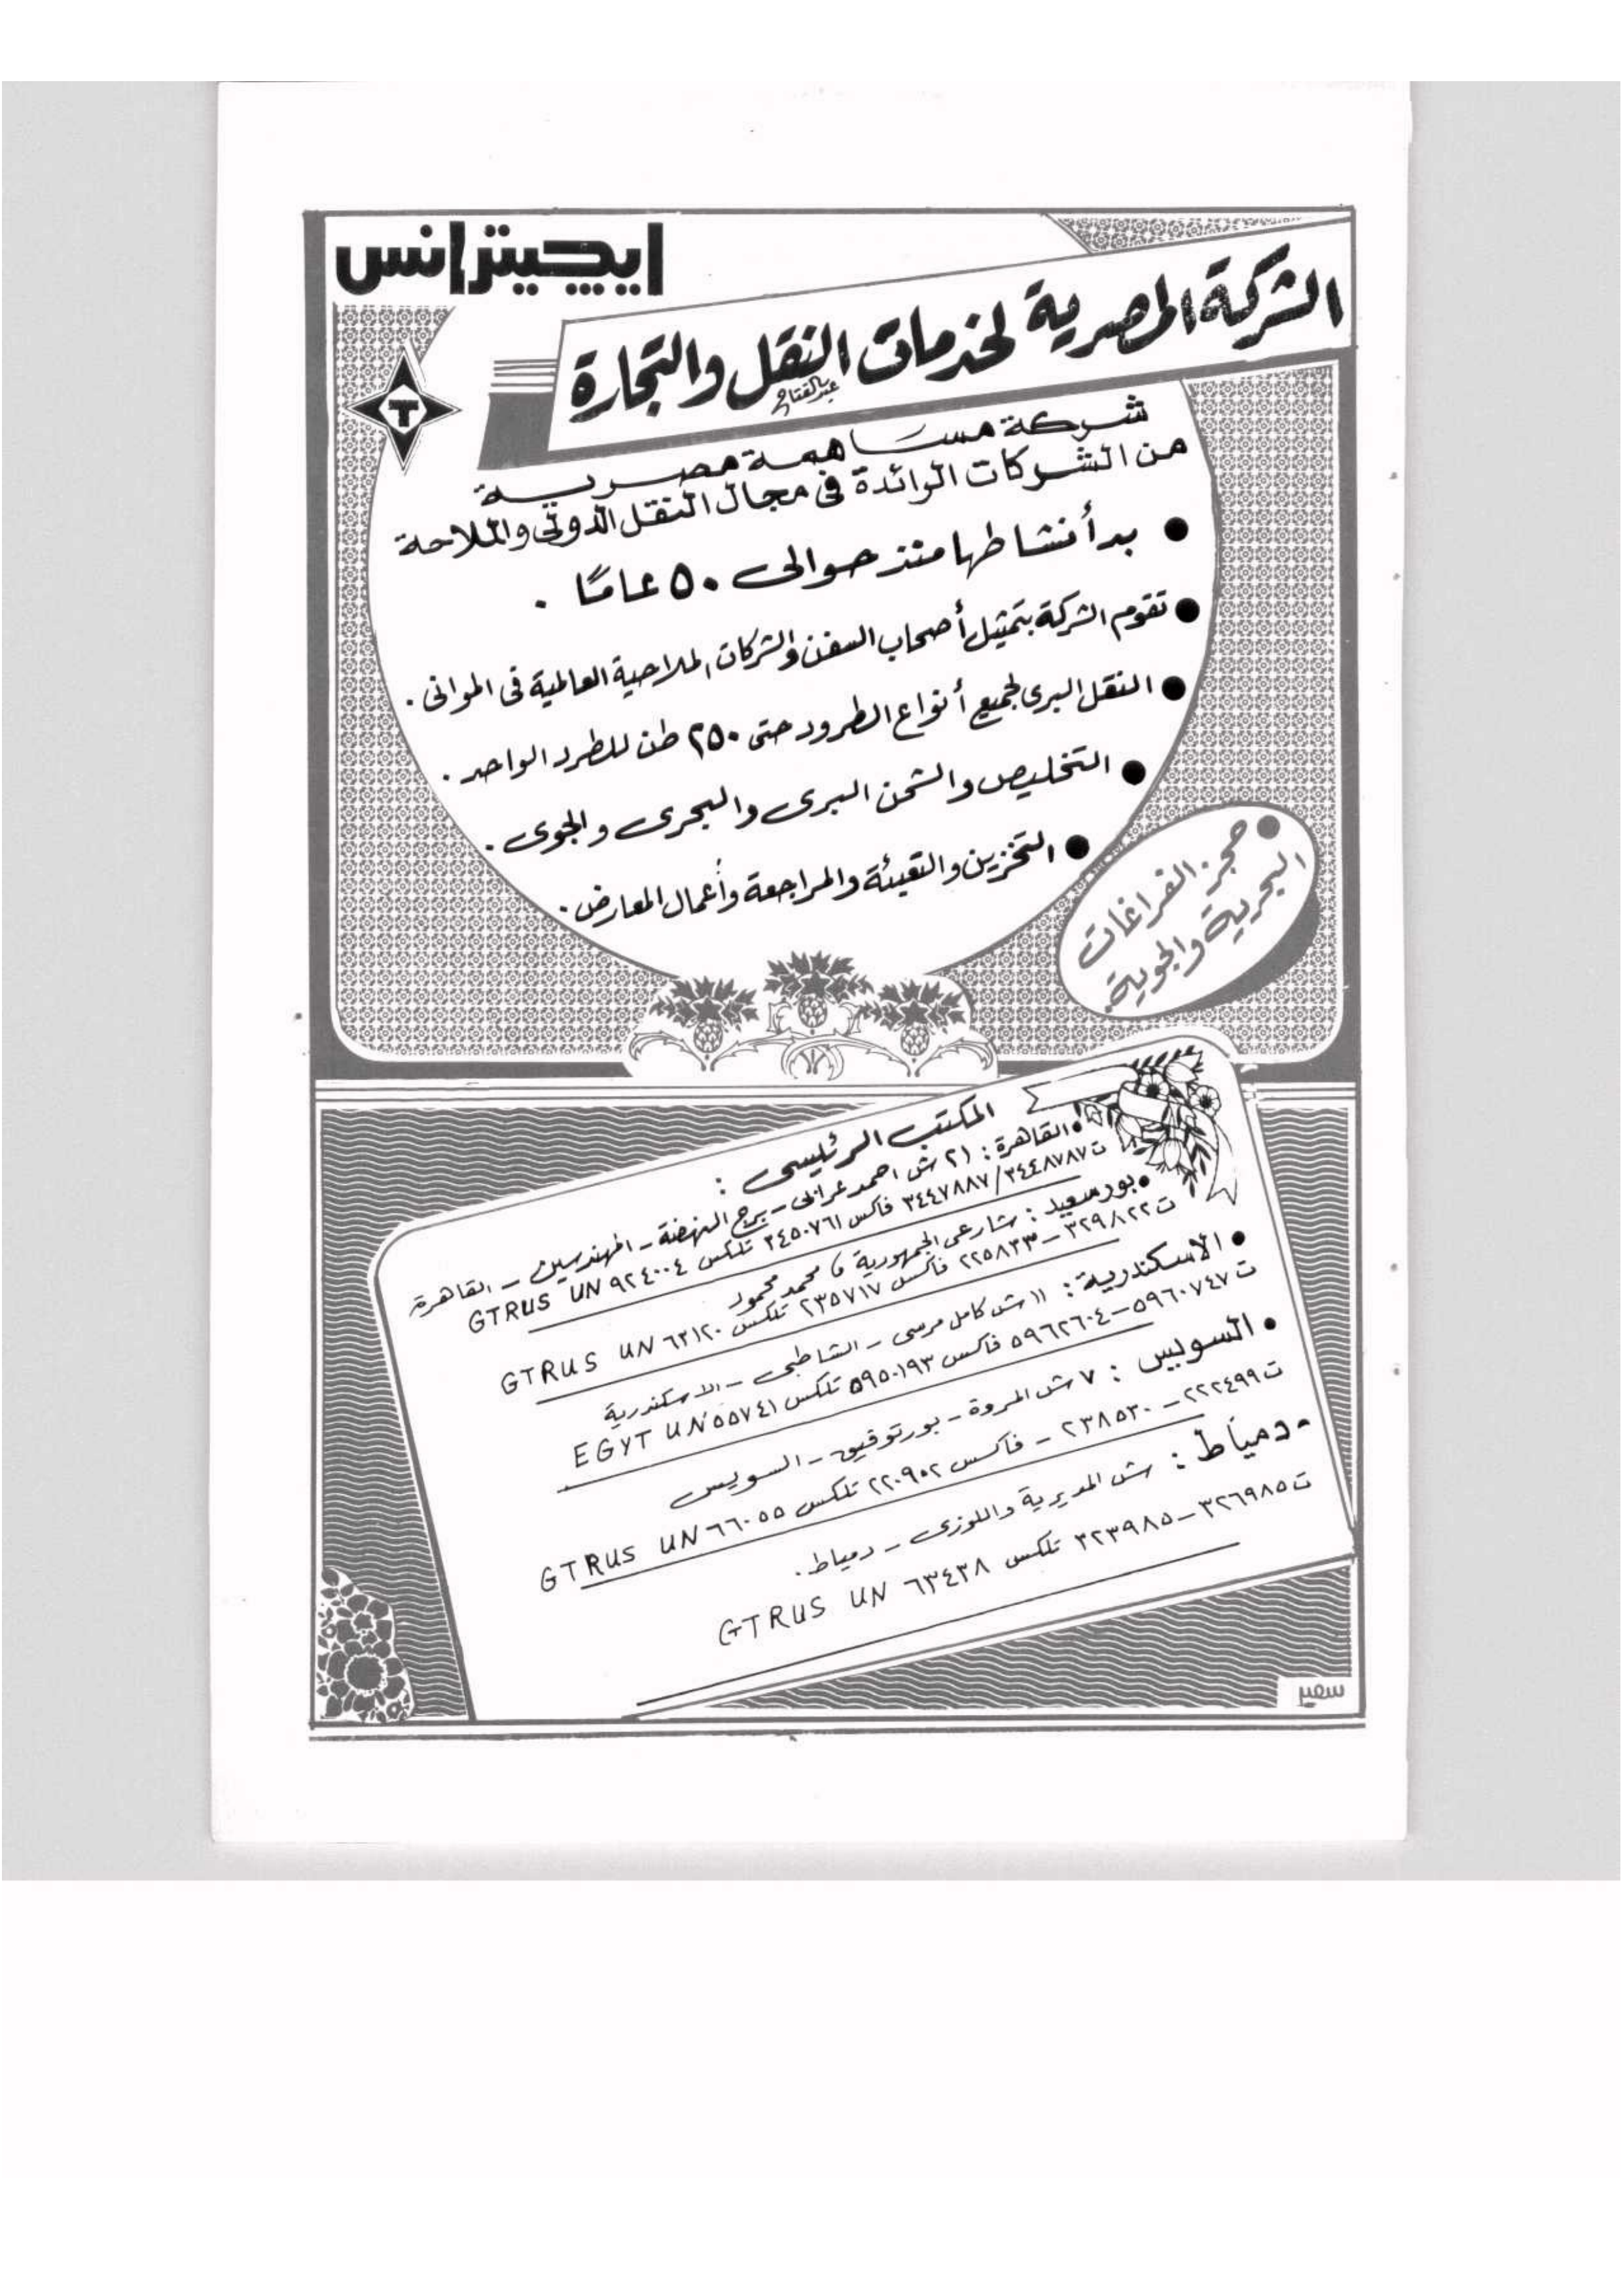 ايچيبترانس
الشركة المصرية لخدمات النقل والتجارة
عبدالفتاح
T
شركة مساهمة مصرية
من الشركات الرائدة فى مجال النقل الدولى والملاحة
● بدأ نشاطها منذ حوالى ٥٠ عامًا .
● تقوم الشركة بتمثيل أصحاب السفن والشركات الملاحية العالمية فى الموانى .
● النقل البرى لجميع أنواع الطرود حتى ٢٥٠ طن للطرد الواحد .
● التخليص والشحن البرى والبحرى والجوى .
● التخزين والتعبئة والمراجعة وأعمال المعارض .
● حجز الفراغات
البحرية والجوية .
المكتب الرئيسى :
● القاهرة : ٢١ ش احمد عرابى - برج النهضة - المهندسين - القاهرة
ت ٣٤٤٨٧٨٧/٣٤٤٧٨٨٧ فاكس ٣٤٥٠٧٦١ تلكس ٩٢٤٠٠٤ GTRUS UN
● بورسعيد : شارعى الجمهورية و محمد محمود
ت ٣٢٩٨٢٢ - ٢٢٥٨٣٣ فاكس ٢٣٥٧١٧ تلكس ٦٣١٢٠ GTRUS UN
● الاسكندرية : ١١ ش كامل مرسى - الشاطبى - الاسكندرية
ت ٥٩٦٠٧٤٧ - ٥٩٦٢٦٠٤ فاكس ٥٩٥٠١٩٣ تلكس ٥٥٧٤١ EGYT UN
● السويس : ٧ ش المروة - بورتوفيق - السويس
ت ٢٢٢٤٩٩ - ٢٣٨٥٣٠ - فاكس ٢٢٠٩٠٢ تلكس ٦٦٠٥٥ GTRUS UN
- دمياط : ش المديرية واللوزى - دمياط .
ت ٣٢٦٩٨٥ - ٣٢٣٩٨٥ تلكس ٦٣٤٣٨ GTRUS UN
سمير